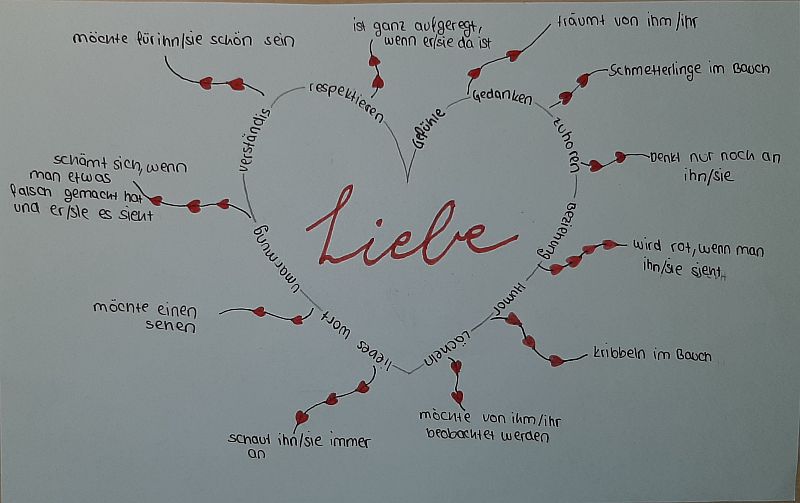 möchte für ihn/sie schön sein
ist ganz aufgeregt,
wenn er/sie da ist
träumt von ihm/ihr
Schmetterlinge im Bauch
Denkt nur noch an
ihn/sie
wird rot, wenn man
ihn/sie sieht
kribbeln im Bauch
möchte von ihm/ihr
beobachtet werden
schaut ihn/sie immer
an
möchte einen
sehen
schämt sich, wenn
man etwas
falsch gemacht hat
und er/sie es sieht
verständis
respektieren
Gefühle
Gedanken
zuhören
Beziehung
Humor
Lächeln
liebes Wort
Umarmung
Liebe